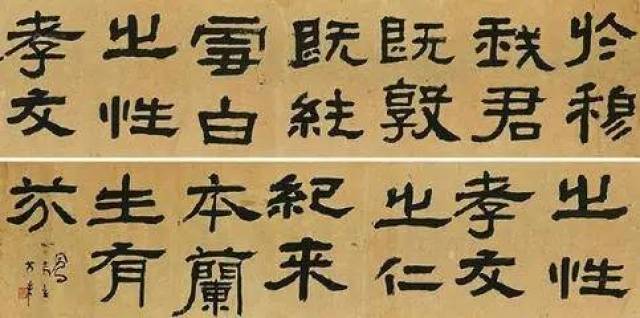 於穆
我君
既敦
既純
雪白
之性
孝友
之性
孝友
之仁
紀来
本蘭
生有
芬